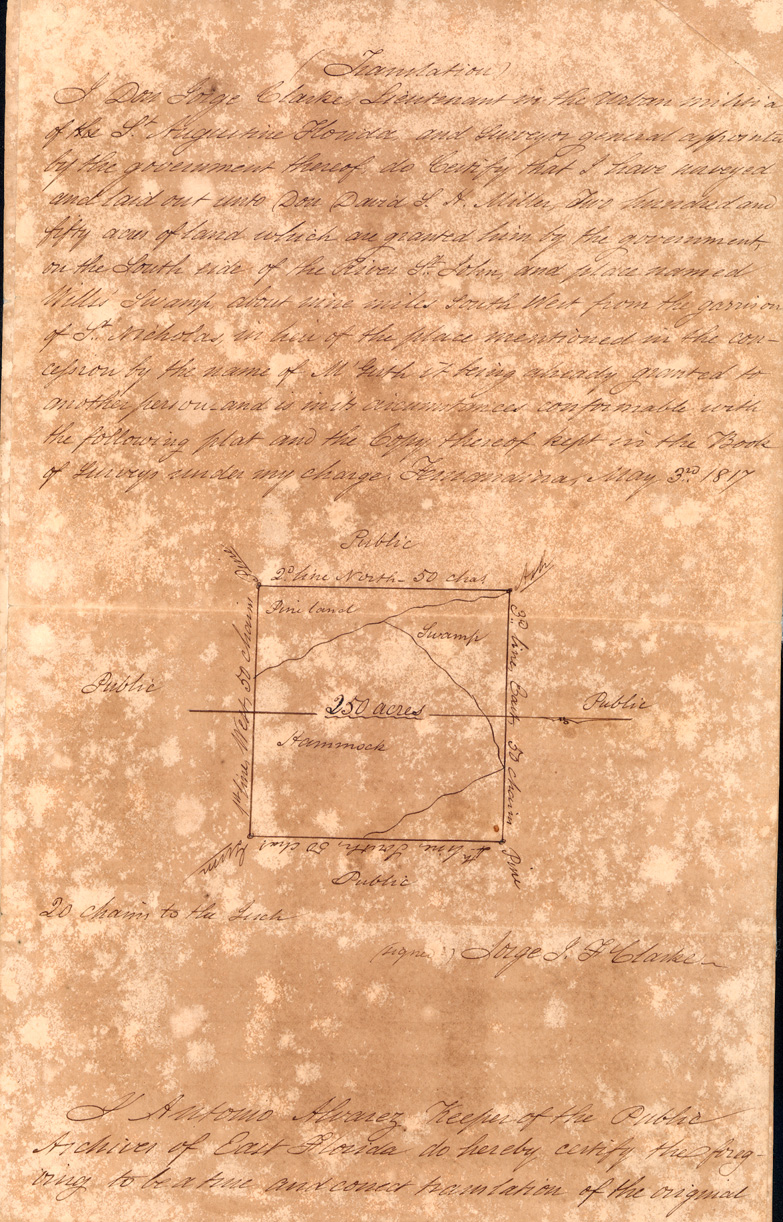 (Translation)
I Don Jorge Clarke Lieutenant in the Urban militia
of the St. Augustine Florida and Surveyor general appointed
by the government thereof, do Certify that I have surveyed
and laid out unto Don David S. H. Miller, Two hundred and
fifty acres of land which are granted him by the government,
on the South side of the River St. John, and place named
Wills Swamp about nine miles South West from the garrison
of St. Nicholas, in lieu of the place mentioned in the con-
cession by the name of M Girth it being already granted to
another person and is in its circumstances conformable with
the following plat and the Copy thereof kept in the Book
of Surveys under my charge. Fernandina, May 3rd 1817
Public
Pine
2d line North - 50 chas
Ash
Pine land
Swamp
1st line, West, 50 chains
3d line, East, 50 chains
Public
250 acres
Public
Hammock
4th line, South, 50 chas
Pine
Public
20 chains to the Inch
(signed) Jorge J. F. Clarke
I Antonio Alvarez Keeper of the Public
Archives of East Florida do hereby certify the foreg-
oing to be a true and correct translation of the original